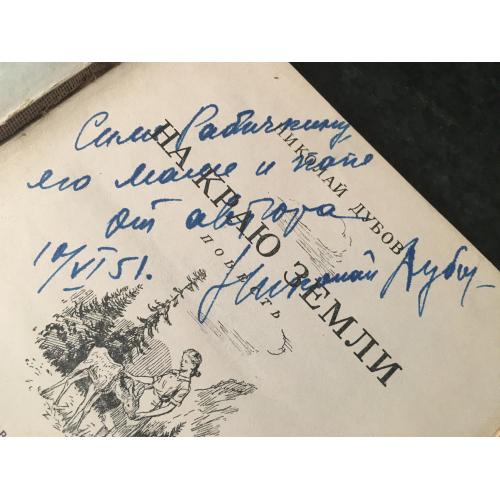 Симе Рабичкину
его маме и папе
от автора
10/VI 51. Николай Дубов
НИКОЛАЙ ДУБОВ
НА КРАЮ ЗЕМЛИ
ПОВЕСТЬ